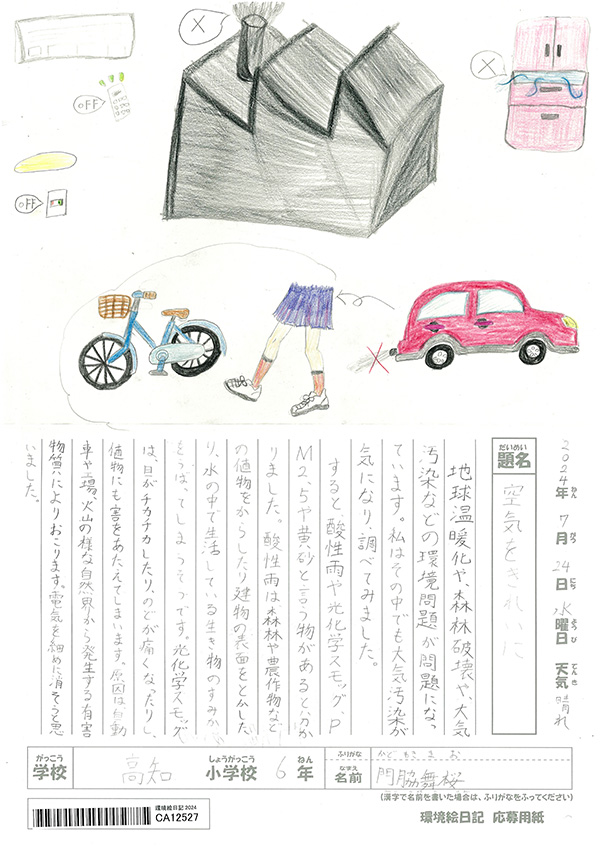 OFF
OFF
2024年 7月 24日 水曜日 天気 晴れ
ねん がつ にち ようび てんき
だいめい
題名 空気をきれいに
地球温暖化や、森林破壊や、大気
汚染などの環境問題が問題になっ
ています。私はその中でも大気汚染が
気になり、調べてみました。
すると、酸性雨や光化学スモッグ、P
M2,5や黄砂と言う物があると分か
りました。酸性雨は、森林や農作物など
の植物をからしたり建物の表面をとかした
り、水の中で生活している生き物のすみか
をうばってしまうそうです。光化学スモッグ
は、目がチカチカしたり、のどが痛くなったりし、
植物にも害をあたえてしまいます。原因は自動
車や工場、火山の様な自然界から発生する有害
物質によりおこります。電気を細めに消そうと思
いました。
がっこう しょうがっこう ねん ふりがな
学校 高知 小学校 6年
なまえ
名前 門脇舞桜
(漢字で名前を書いた場合は、ふりがなをふってください)
環境絵日記 2024
CA12527
環境絵日記 応募用紙